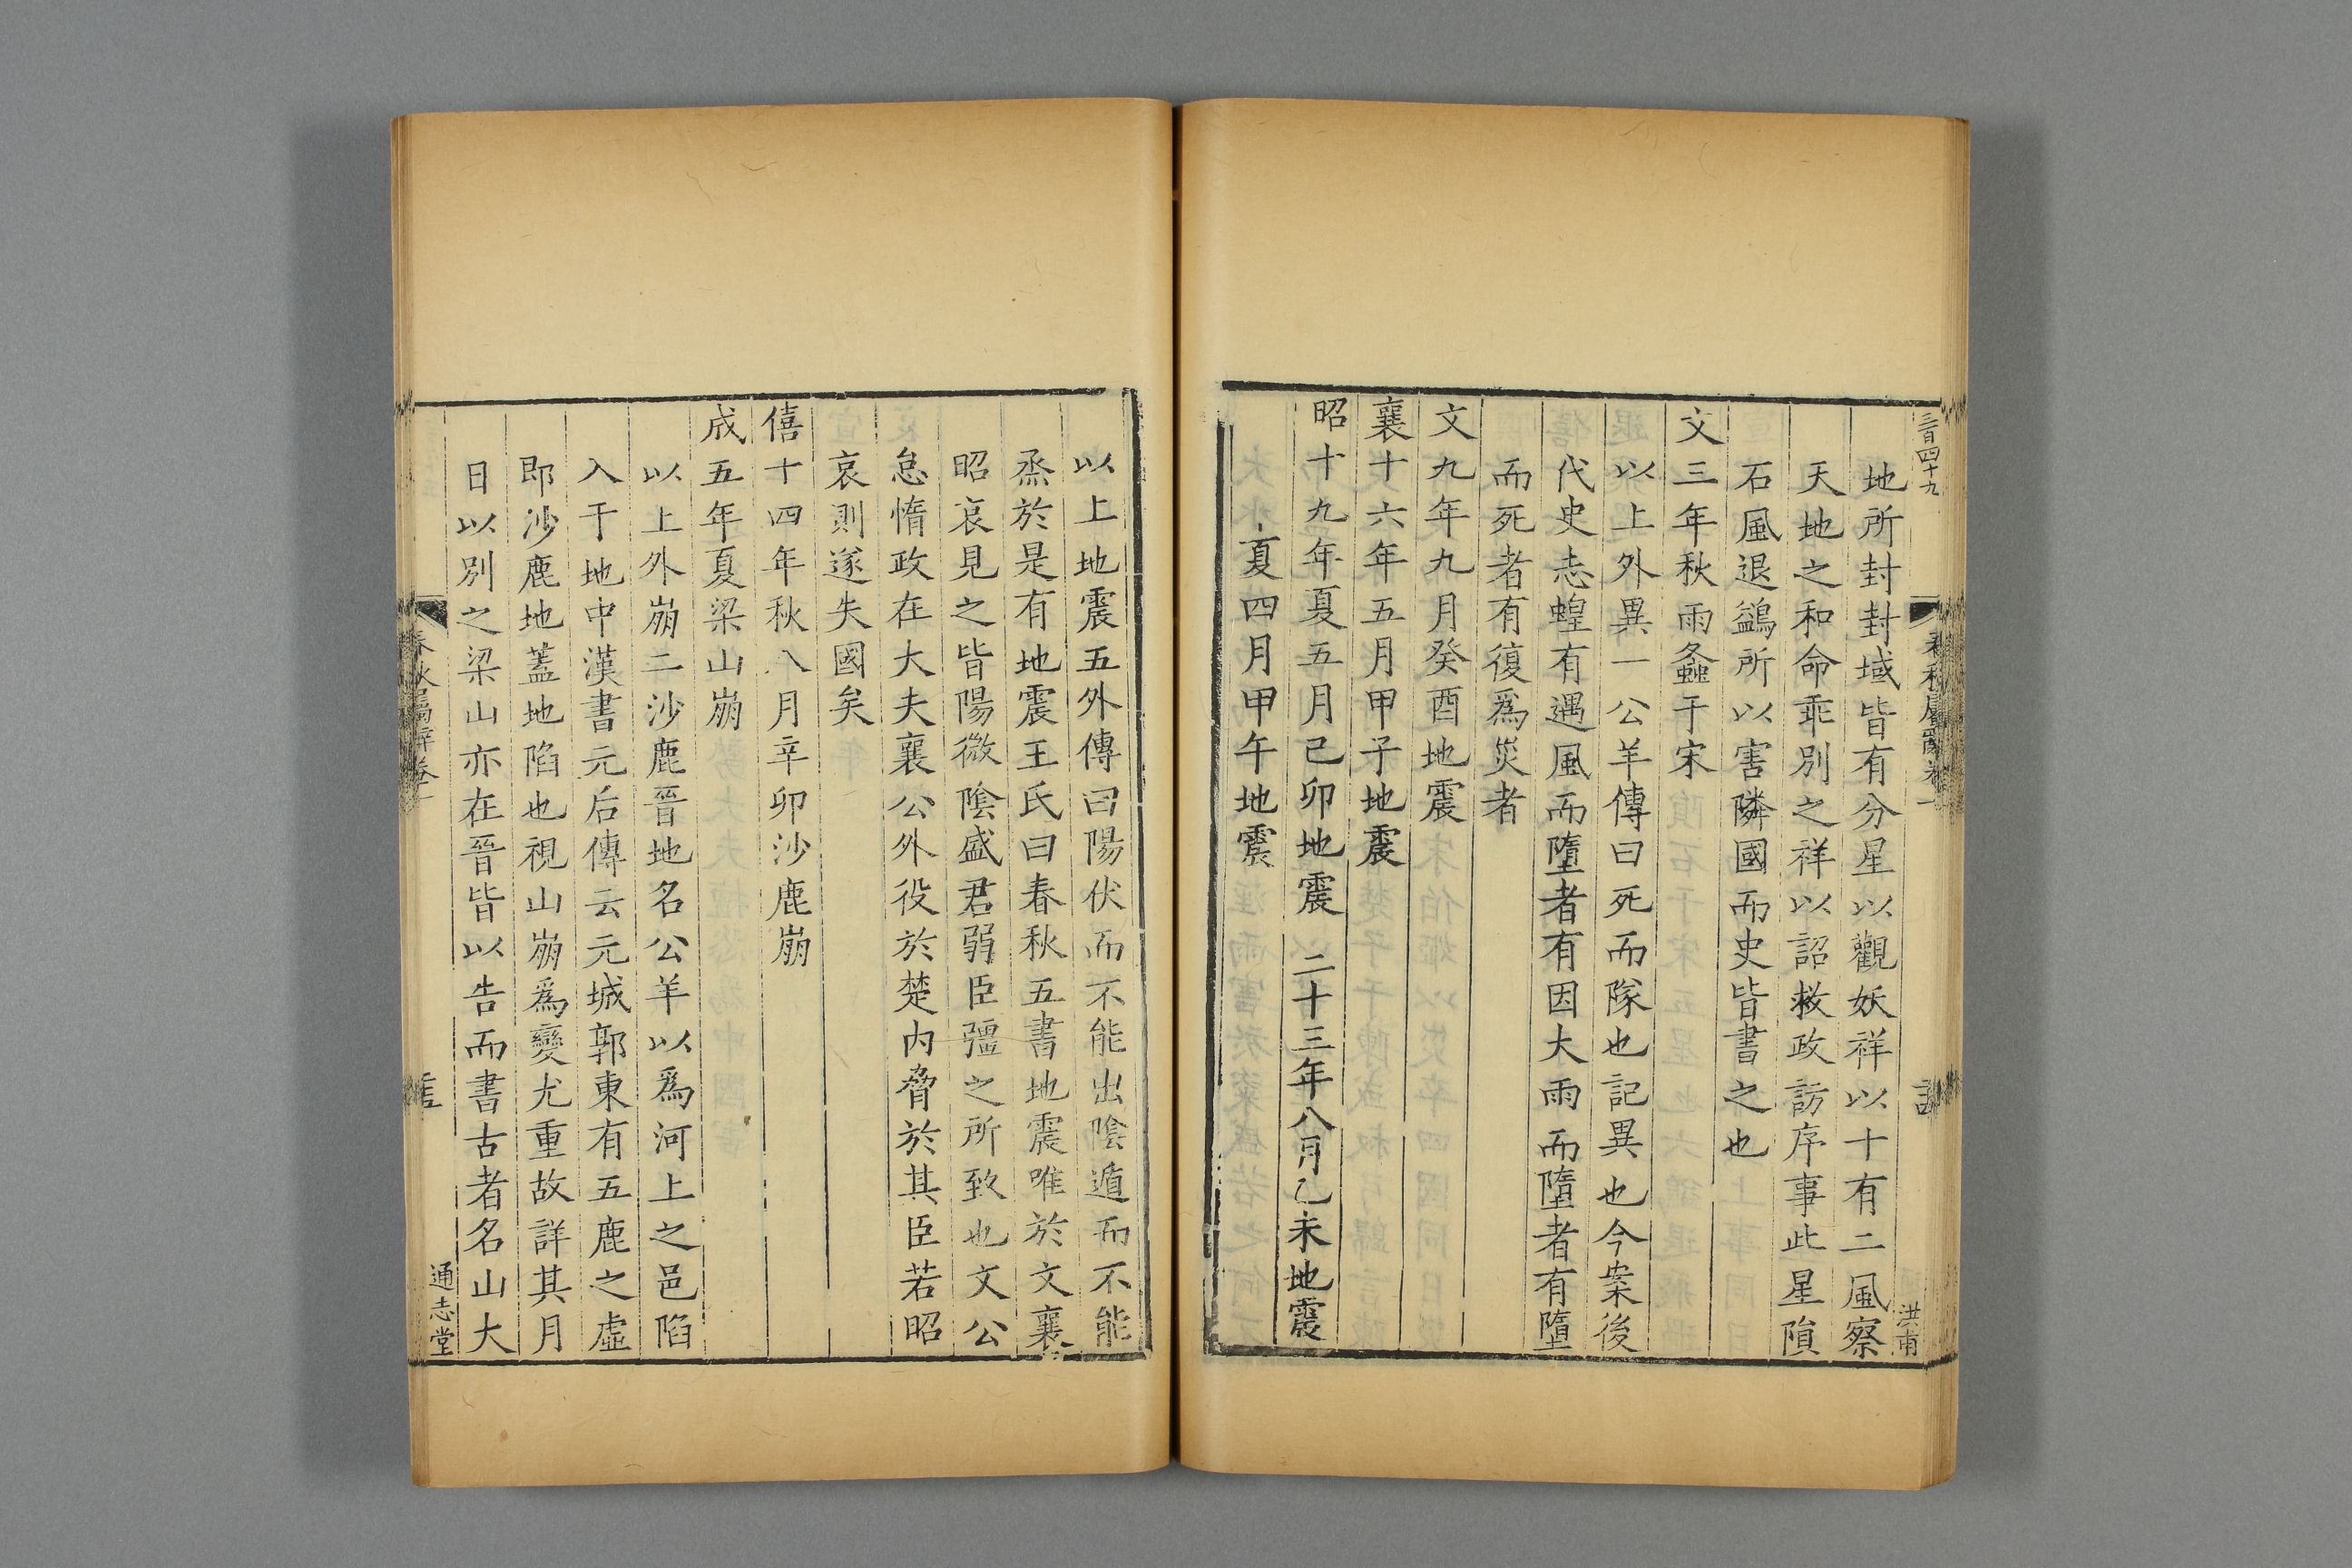 三百四十九
洪甫
地所封封域皆有分星以觀妖祥以十有二風察
天地之和命乖別之祥以詔救政訪序事此星隕
石風退鷁所以害隣國而史皆書之也
文三年秋雨螽于宋
以上外異一公羊傳曰死而隊也記異也今案後
代史志蝗有遇風而墮者有因大雨而墮者有墮
而死者有復爲災者
文九年九月癸酉地震
襄十六年五月甲子地震
昭十九年夏五月己卯地震 二十三年八月乙未地震
夏四月甲午地震
以上地震五外傳曰陽伏而不能出陰遁而不能
烝於是有地震王氏曰春秋五書地震唯於文襄
昭哀見之皆陽微陰盛君弱臣彊之所致也文公
怠惰政在大夫襄公外役於楚内脅於其臣若昭
哀則遂失國矣
僖十四年秋八月辛卯沙鹿崩
成五年夏梁山崩
以上外崩二沙鹿晉地名公羊以爲河上之邑陷
入于地中漢書元后傳云元城郭東有五鹿之虛
即沙鹿地蓋地陷也視山崩爲變尤重故詳其月
日以別之梁山亦在晉皆以告而書古者名山大
通志堂